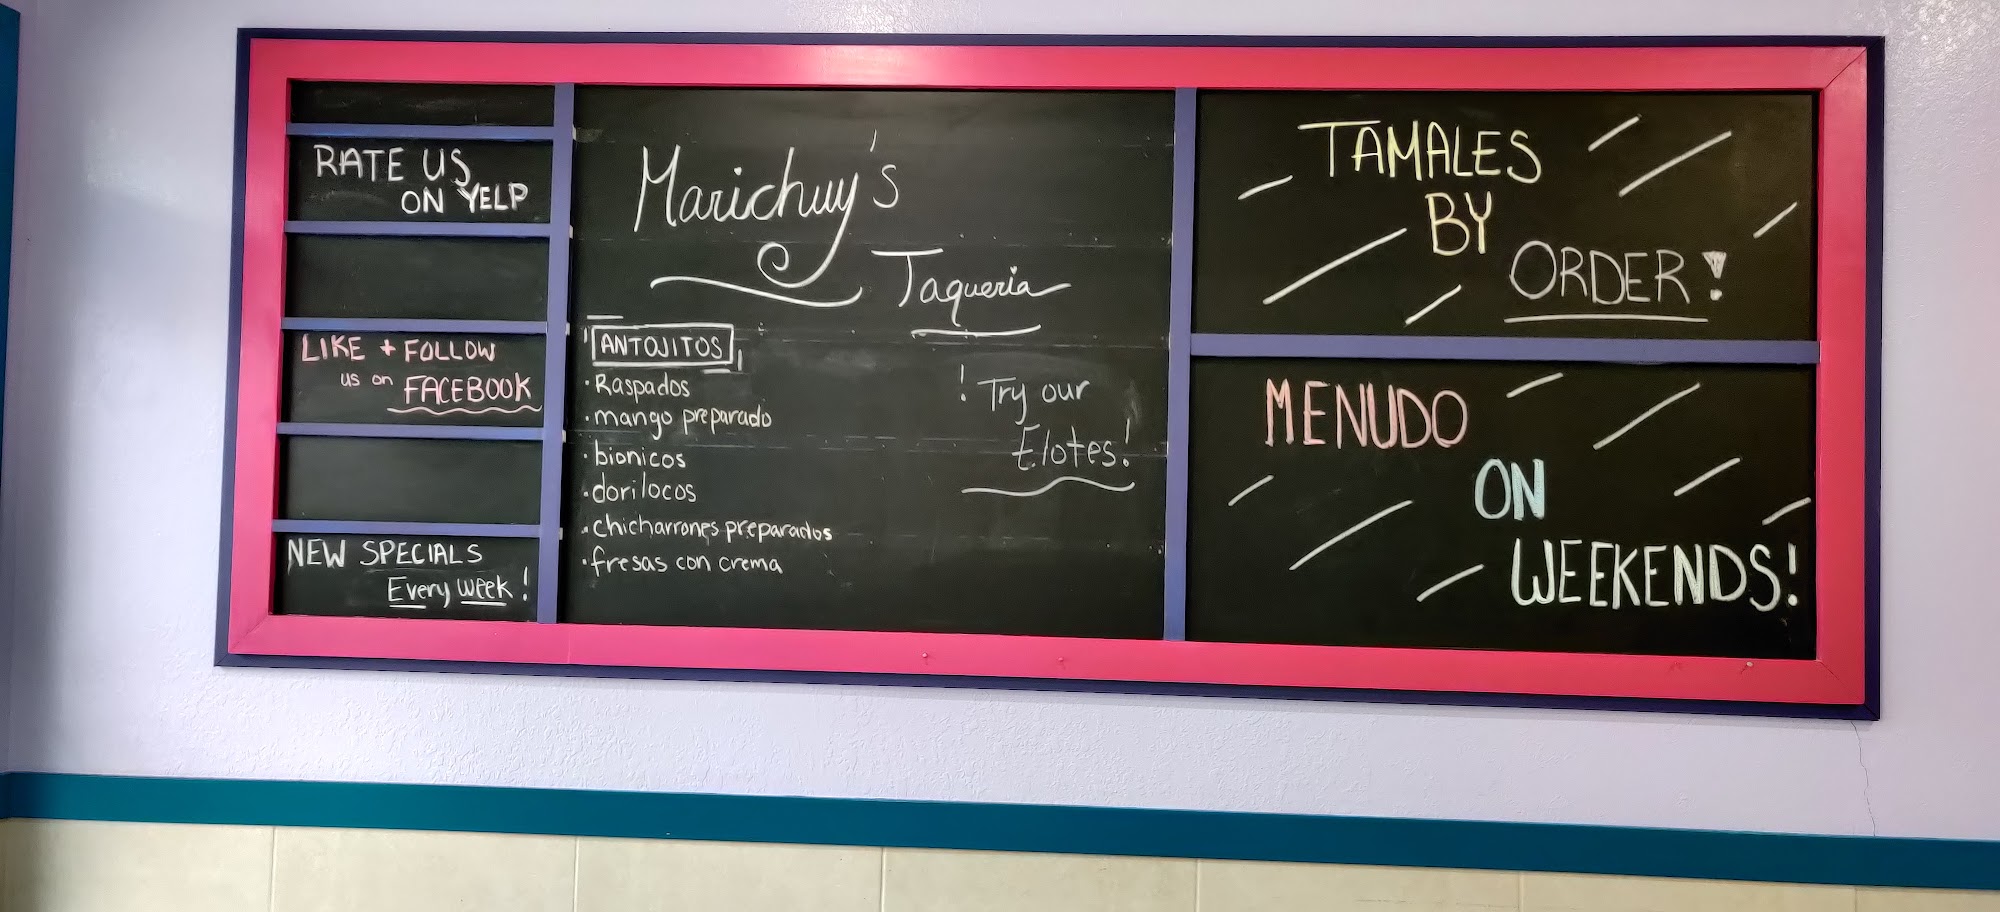 RATE US
ON YELP
LIKE + FOLLOW
us on FACEBOOK
NEW SPECIALS
Every week!
Marichuy's
Taqueria
ANTOJITOS
· Raspados
· mango preparado
· bionicos
· dorilocos
· chicharrones preparados
· fresas con crema
! Try our
Elotes!
TAMALES
BY
ORDER!
MENUDO
ON
WEEKENDS!